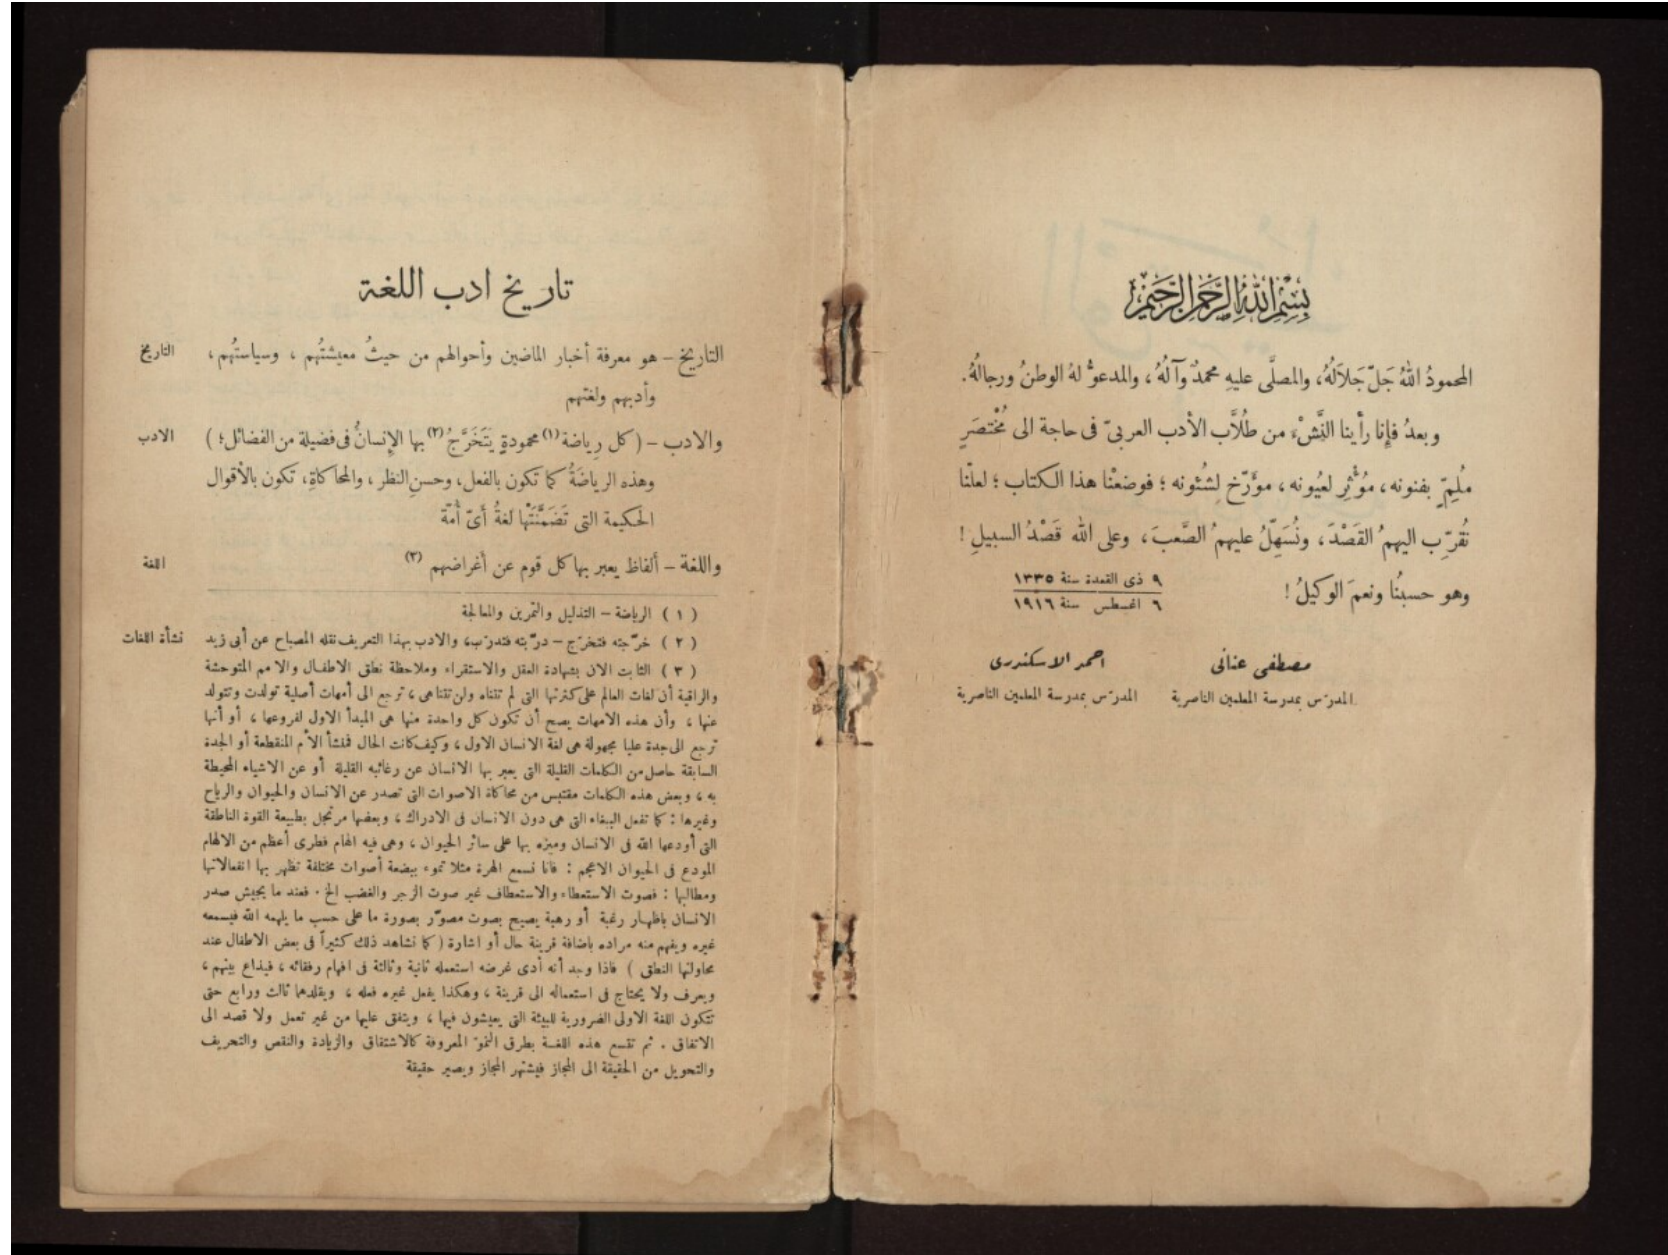 بِسْمِ اللهِ الرَّحْمٰنِ الرَّحِيْمِ
المحمودُ اللهُ جَلّ جَلاَلُهُ، والمصلَّى عليهِ محمدٌ وآلُهُ، والمدعوُّ لهُ الوطنُ ورجالُهُ.
وبعدُ فإِنا رأينا النَّشْءَ من طُلَّاب الأدب العربىّ فى حاجة الى مُخْتصَرٍ
مُلِمّ بفنونه، مُؤْثِر لعُيُونه، مؤرّخ لِشئُونه؛ فوضعْنا هذا الكتاب؛ لعلّنا
نُقرّب اليهمُ القَصْدَ، ونُسَهّلُ عليهمُ الصَّعبَ، وعلى الله قَصْدُ السبيلِ!
وهو حسبنُا ونعمَ الوكيلُ!
٩ ذى القعدة سنة ١٣٣٥
٦ اغسطس سنة ١٩١٦
مصطفى عنانى
المدرّس بمدرسة المعلمين الناصرية
احمد الاسكندرى
المدرّس بمدرسة المعلمين الناصرية
تاريخ ادب اللغة
التاريخ – هو معرفة أخبار الماضين وأحوالهم من حيثُ معيشتُهم، وسياستُهم،
التاريخ
وأدبهم ولغتهم
والادب – (كل رِياضة (١) محمودةٍ يَتَخَرَّجُ (٢) بها الإِنسانُ فى فضيلة من الفضائل؛)
الادب
وهذه الرياضَةُ كما تكون بالفعل، وحسنِ النظر، والمحاكاةِ، تكون بالأقوال
الحَكيمة التى تَضَمَّنَتْها لغةُ أىّ أُمّة
واللغة – ألفاظ يعبر بها كل قوم عن أغراضهم (٣)
اللغة
(١) الرياضة – التذليل والتمرين والمعالجة
(٢) خرّجته فتخرّج – درّبته فتدرّب، والادب بهذا التعريف نقله المصباح عن أبى زيد
نشأة اللغات
(٣) الثابت الان بشهادة العقل والاستقراء وملاحظة نطق الاطفال والامم المتوحشة
والراقية أن لغات العالم على كثرتها التى لم تتناه ولن تتناهى، ترجع الى أمهات أصلية تولدت وتتولد
عنها، وأن هذه الامهات يصح أن تكون كل واحدة منها هى المبدأ الاول لفروعها، أو أنها
ترجع الى جدة عليا مجهولة هى لغة الانسان الاول، وكيف كانت الحال فمنشأ الأم المنقطعة أو الجدة
السابقة حاصل من الكلمات القليلة التى يعبر بها الانسان عن رغائبه القليلة أو عن الاشياء المحيطة
به، وبعض هذه الكلمات مقتبس من محاكاة الاصوات التى تصدر عن الانسان والحيوان والرياح
وغيرها: كما تفعل الببغاء التى هى دون الانسان فى الادراك، وبعضها مرتجل بطبيعة القوة الناطقة
التى أودعها الله فى الانسان وميزه بها على سائر الحيوان، وهى فيه الهام فطرى أعظم من الالهام
المودع فى الحيوان الاعجم: فانا نسمع الهرة مثلا تموء ببضعة أصوات مختلفة تظهر بها انفعالاتها
ومطالبها: فصوت الاستعطاء والاستعطاف غير صوت الزجر والغضب الخ. فعند ما يجيش صدر
الانسان باظهار رغبة أو رهبة يصيح بصوت مصوّر بصورة ما على حسب ما يلهمه الله فيسمعه
غيره ويفهم منه مراده باضافة قرينة حال أو اشارة (كما نشاهد ذلك كثيراً فى بعض الاطفال عند
محاولتها النطق) فاذا وجد أنه أدى غرضه استعمله ثانية وثالثة فى افهام رفقائه، فيذاع بينهم،
ويعرف ولا يحتاج فى استعماله الى قرينة، وهكذا يفعل غيره فعله، ويقلدهما ثالث ورابع حتى
تتكون اللغة الاولى الضرورية للبيئة التى يعيشون فيها، ويتفق عليها من غير تعمل ولا قصد الى
الاتفاق. ثم تتسع هذه اللغة بطرق النموّ المعروفة كالاشتقاق والزيادة والنقص والتحريف
والتحويل من الحقيقة الى المجاز فيشتهر المجاز ويصير حقيقة